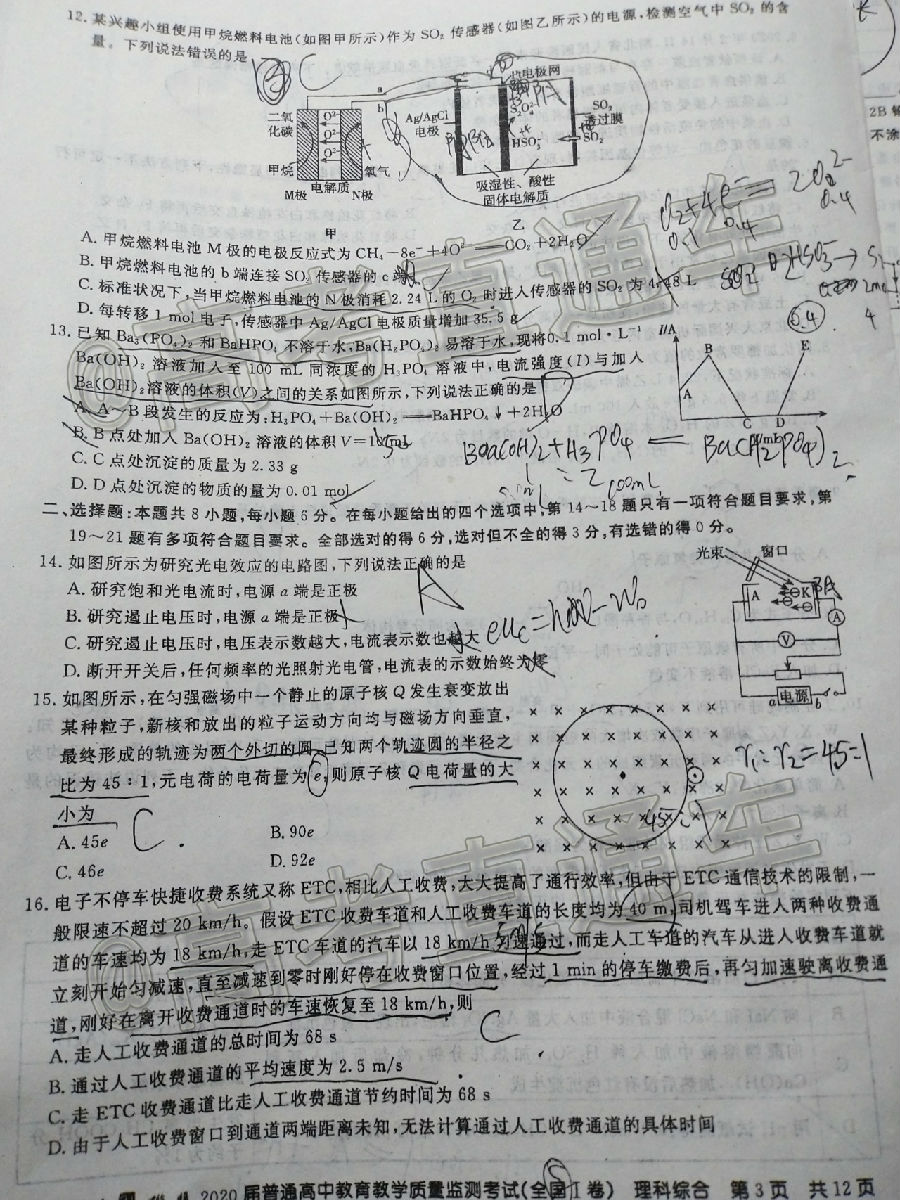 12. 某兴趣小组使用甲烷燃料电池(如图甲所示)作为 SO₂ 传感器(如图乙所示)的电源,检测空气中 SO₂ 的含
量。下列说法错误的是
C
a
b
二氧
化碳
O²⁻
O²⁻
O²⁻
甲烷
氧气
电解质
M极
N极
甲
Ag/AgCl
电极
电极网
HSO₃⁻
SO₂
透过膜
SO₂
吸湿性、酸性
固体电解质
乙
A. 甲烷燃料电池 M 极的电极反应式为 CH₄-8e⁻+4O²⁻══CO₂+2H₂O
B. 甲烷燃料电池的 b 端连接 SO₂ 传感器的 c 端
C. 标准状况下,当甲烷燃料电池的 N 极消耗 2.24 L 的 O₂ 时进入传感器的 SO₂ 为 4.48 L
D. 每转移 1 mol 电子,传感器中 Ag/AgCl 电极质量增加 35.5 g
O₂+4e⁻═2O²⁻
0.1 0.4
0.4
13. 已知 Ba₃(PO₄)₂ 和 BaHPO₄ 不溶于水,Ba(H₂PO₄)₂ 易溶于水,现将0.1 mol·L⁻¹
Ba(OH)₂ 溶液加入至 100 mL 同浓度的 H₃PO₄ 溶液中,电流强度(I)与加入
Ba(OH)₂溶液的体积(V)之间的关系如图所示,下列说法正确的是
I/A
A
B
C
D
E
A. A～B 段发生的反应为:H₃PO₄+Ba(OH)₂══BaHPO₄↓+2H₂O
B. B 点处加入 Ba(OH)₂ 溶液的体积 V=
C. C 点处沉淀的质量为 2.33 g
D. D 点处沉淀的物质的量为 0.01 mol
Ba(OH)₂+H₃PO₄ ═ Ba(H₂PO₄)₂
二、选择题:本题共 8 小题,每小题 6 分。在每小题给出的四个选项中,第 14～18 题只有一项符合题目要求,第
19～21 题有多项符合题目要求。全部选对的得 6 分,选对但不全的得 3 分,有选错的得 0 分。
14. 如图所示为研究光电效应的电路图,下列说法正确的是
A. 研究饱和光电流时,电源 a 端是正极
B. 研究遏止电压时,电源 a 端是正极
C. 研究遏止电压时,电压表示数越大,电流表示数也越大
D. 断开开关后,任何频率的光照射光电管,电流表的示数始终为零
A
光束
窗口
A
K
A
V
a
电源
b
15. 如图所示,在匀强磁场中一个静止的原子核 Q 发生衰变放出
某种粒子,新核和放出的粒子运动方向均与磁场方向垂直,
最终形成的轨迹为两个外切的圆,已知两个轨迹圆的半径之
比为 45∶1,元电荷的电荷量为 e,则原子核 Q 电荷量的大
小为
A. 45e
B. 90e
C. 46e
D. 92e
C
r₁:r₂=45:1
16. 电子不停车快捷收费系统又称 ETC,相比人工收费,大大提高了通行效率,但由于 ETC 通信技术的限制,一
般限速不超过 20 km/h。假设 ETC 收费车道和人工收费车道的长度均为 40 m,司机驾车进入两种收费通
道的车速均为 18 km/h,走 ETC 车道的汽车以 18 km/h 匀速通过,而走人工车道的汽车从进入收费车道就
立刻开始匀减速,直至减速到零时刚好停在收费窗口位置,经过 1 min 的停车缴费后,再匀加速驶离收费通
道,刚好在离开收费通道时的车速恢复至 18 km/h,则
C
A. 走人工收费通道的总时间为 68 s
B. 通过人工收费通道的平均速度为 2.5 m/s
C. 走 ETC 收费通道比走人工收费通道节约时间为 68 s
D. 由于人工收费窗口到通道两端距离未知,无法计算通过人工收费通道的具体时间
2020 届普通高中教育教学质量监测考试(全国Ⅰ卷) 理科综合 第 3 页 共 12 页
@高考直通车
@高考直通车